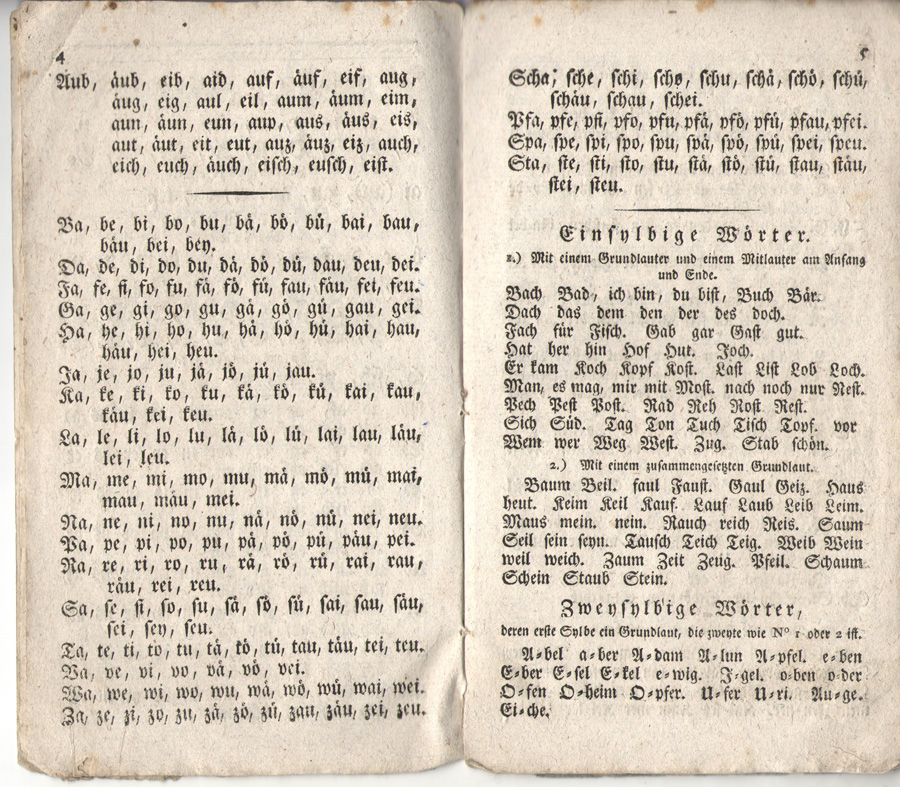 4
Aub, äub, eib, aid, auf, äuf, eif, aug,
äug, eig, aul, eil, aum, äum, eim,
aun, äun, eun, aup, aus, äus, eis,
aut, äut, eit, eut, auz, äuz, eiz, auch,
eich, euch, äuch, eisch, eusch, eist.
Ba, be, bi, bo, bu, bä, bö, bü, bai, bau,
bäu, bei, bey.
Da, de, di, do, du, dä, dö, dü, dau, deu, dei.
Fa, fe, fi, fo, fu, fä, fö, fü, fau, fäu, fei, feu.
Ga, ge, gi, go, gu, gä, gö, gü, gau, gei.
Ha, he, hi, ho, hu, hä, hö, hü, hai, hau,
häu, hei, heu.
Ja, je, jo, ju, jä, jö, jü, jau.
Ka, ke, ki, ko, ku, kä, kö, kü, kai, kau,
käu, kei, keu.
La, le, li, lo, lu, lä, lö, lü, lai, lau, läu,
lei, leu.
Ma, me, mi, mo, mu, mä, mö, mü, mai,
mau, mäu, mei.
Na, ne, ni, no, nu, nä, nö, nü, nei, neu.
Pa, pe, pi, po, pu, pä, pö, pü, päu, pei.
Ra, re, ri, ro, ru, rä, rö, rü, rai, rau,
räu, rei, reu.
Sa, se, si, so, su, sä, sö, sü, sai, sau, säu,
sei, sey, seu.
Ta, te, ti, to, tu, tä, tö, tü, tau, täu, tei, teu.
Va, ve, vi, vo, vä, vö, vei.
Wa, we, wi, wo, wu, wä, wö, wü, wai, wei.
Za, ze, zi, zo, zu, zä, zö, zü, zau, zäu, zei, zeu.
5
Scha, sche, schi, scho, schu, schä, schö, schü,
schäu, schau, schei.
Pfa, pfe, pfi, pfo, pfu, pfä, pfö, pfü, pfau, pfei.
Spa, spe, spi, spo, spu, spä, spö, spü, spei, speu.
Sta, ste, sti, sto, stu, stä, stö, stü, stau, stäu,
stei, steu.
Einsylbige Wörter.
1.) Mit einem Grundlauter und einem Mitlauter am Anfang
und Ende.
Bach Bad, ich bin, du bist, Buch Bär.
Dach das dem den der des doch.
Fach für Fisch. Gab gar Gast gut.
Hat her hin Hof Hut. Joch.
Er kam Koch Kopf Kost. Last List Lob Loch.
Man, es mag, mir mit Most. nach noch nur Nest.
Pech Pest Post. Rad Reh Rost Rest.
Sich Süd. Tag Ton Tuch Tisch Topf. vor
Wem wer Weg West. Zug. Stab schön.
2.) Mit einem zusammengesetzten Grundlaut.
Baum Beil. faul Faust. Gaul Geiz. Haus
heut. Keim Keil Kauf. Lauf Laub Leib Leim.
Maus mein. nein. Rauch reich Reis. Saum
Seil sein seyn. Tausch Teich Teig. Weib Wein
weil weich. Zaum Zeit Zeug. Pfeil. Schaum
Schein Staub Stein.
Zweysylbige Wörter,
deren erste Sylbe ein Grundlaut, die zweyte wie N° 1 oder 2 ist.
A-bel a-ber A-dam A-lun A-pfel. e-ben
E-ber E-sel E-kel e-wig. J-gel. o-ben o-der
O-fen O-heim O-pfer. U-fer U-ri. Au-ge.
Ei-che.